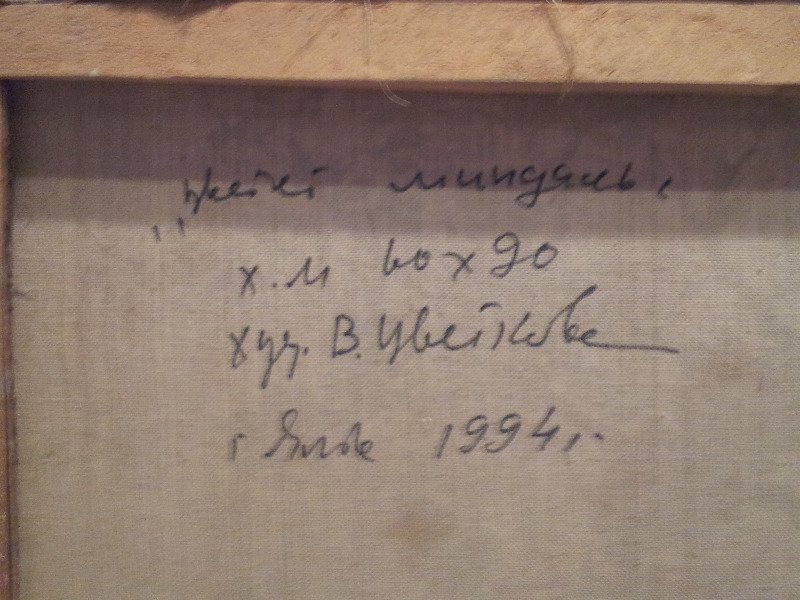 „Цветет миндаль"
х.м 60х90
худ. В. Цветкова
г Ялта 1994 г.